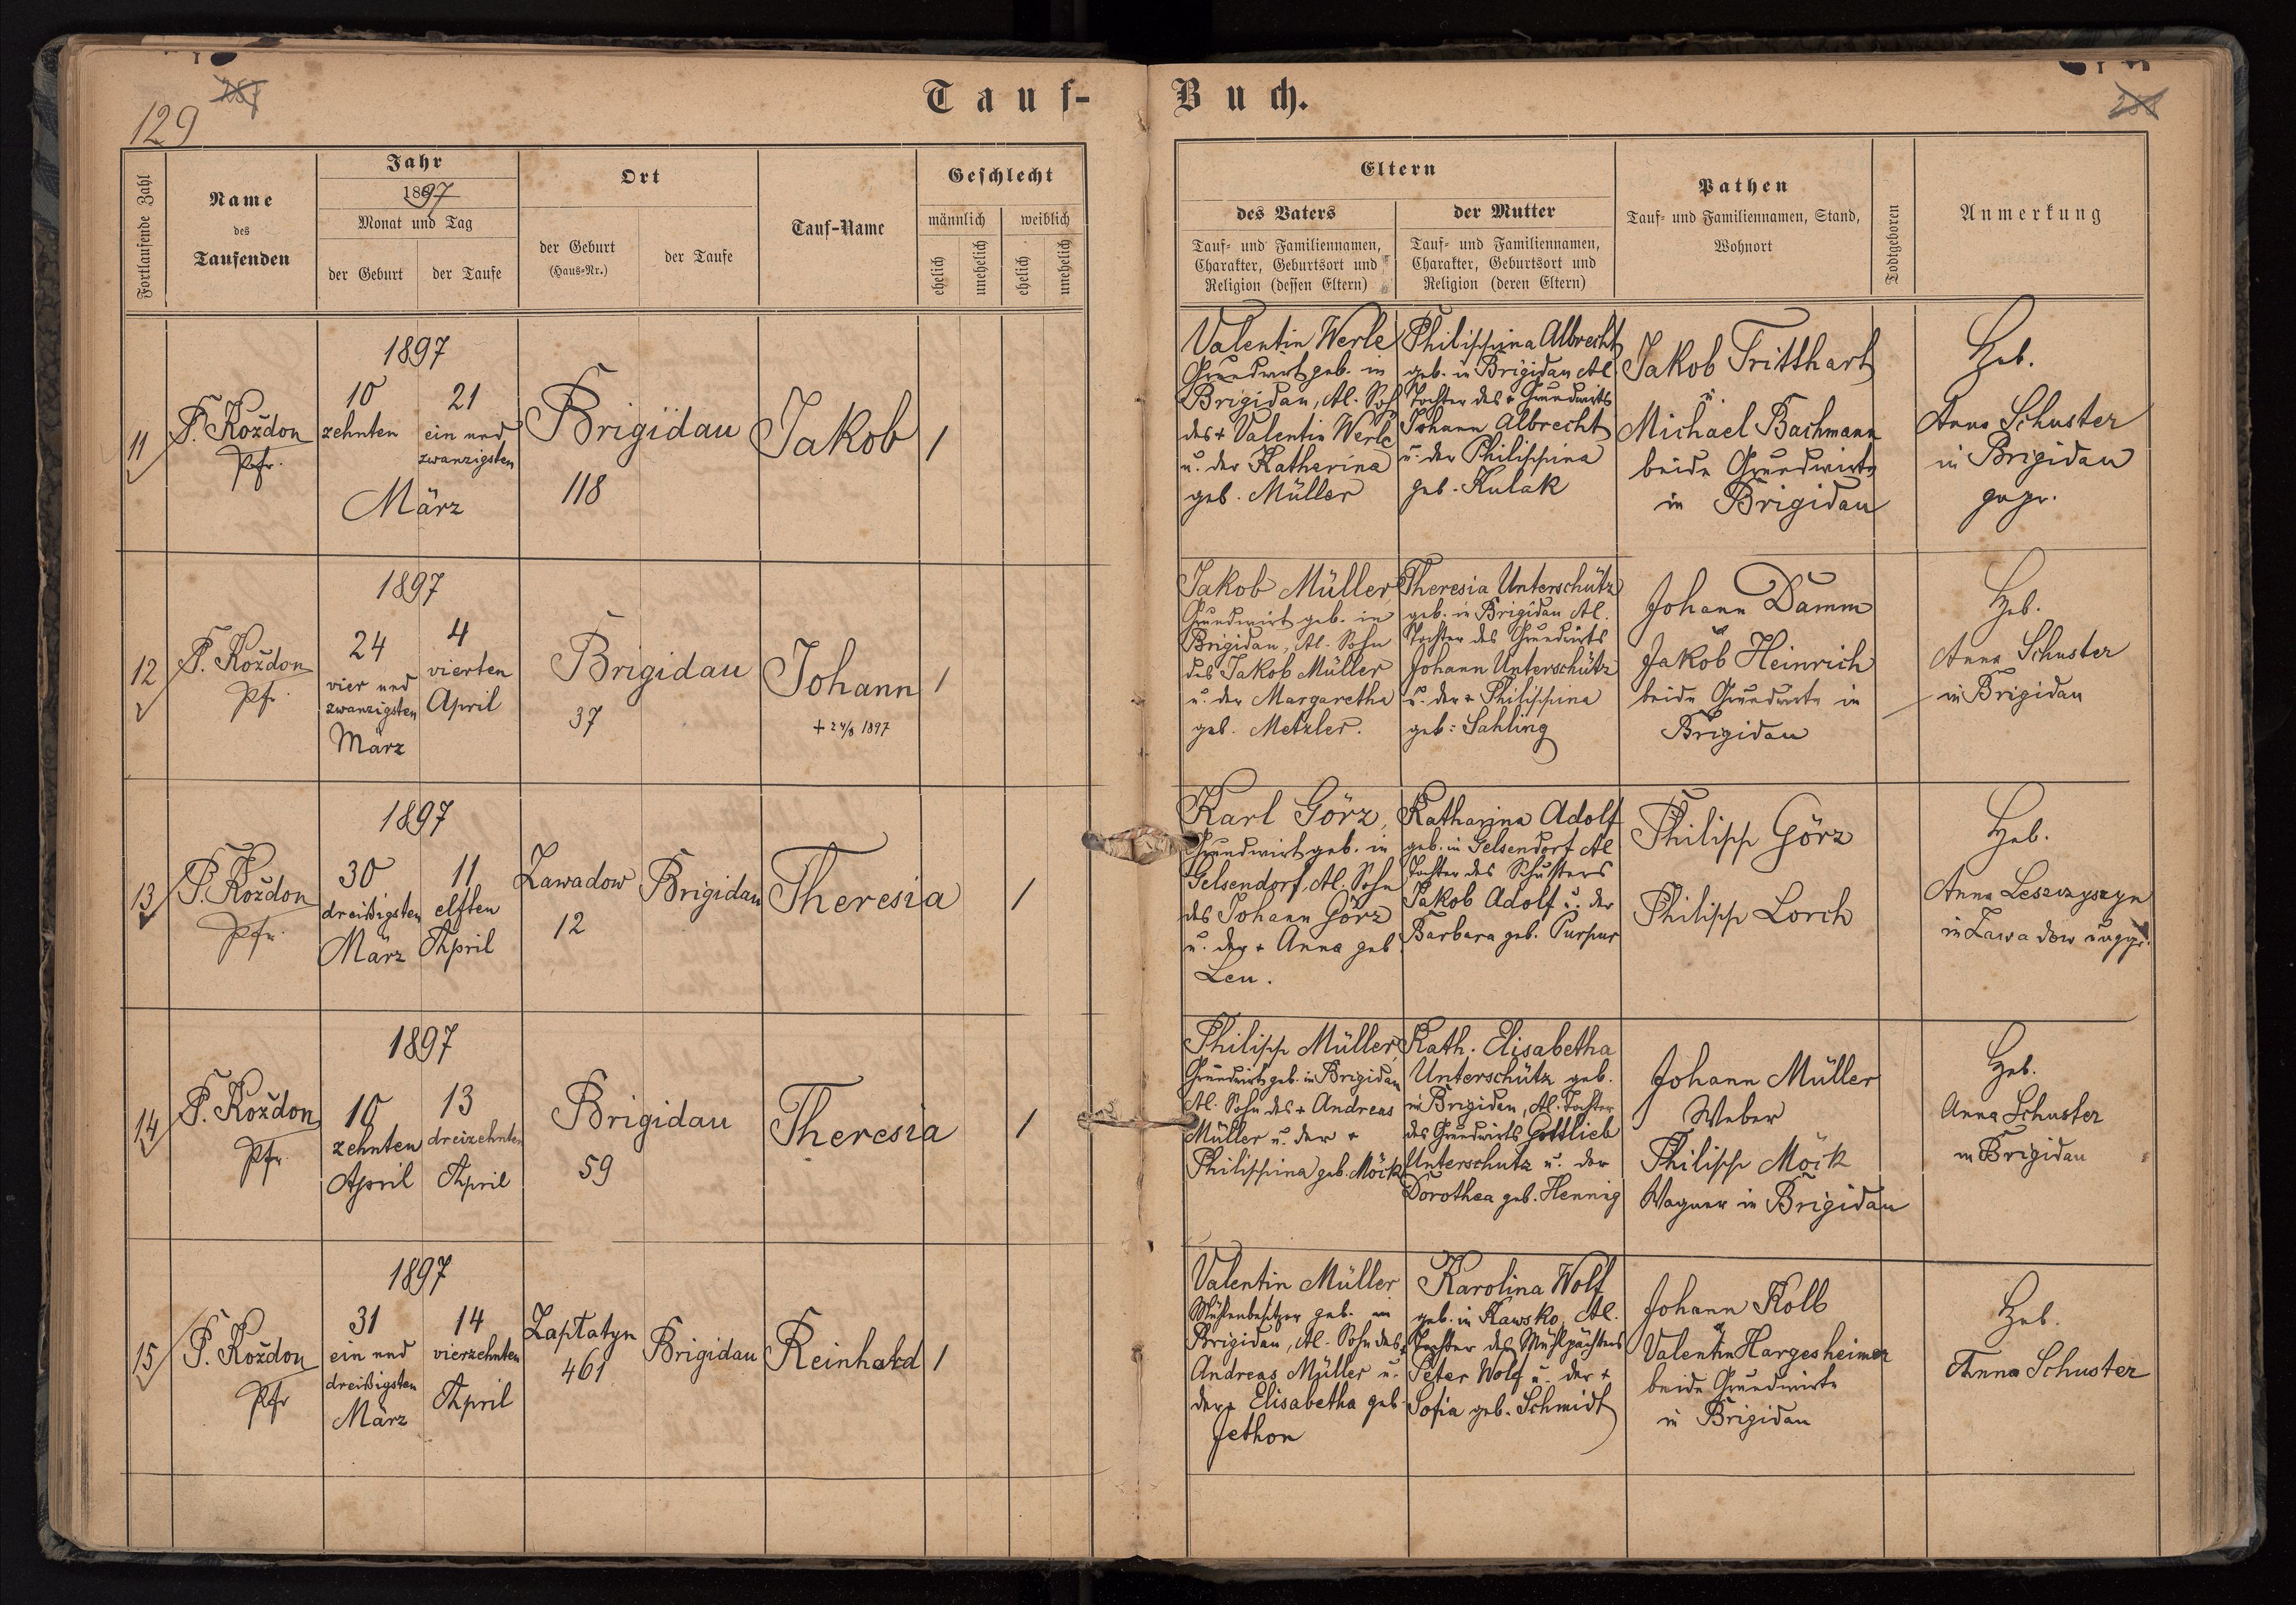 129
287
Tauf-
Buch.
288
Fortlaufende Zahl
Name
des
Taufenden
Jahr
1897
Monat und Tag
der Geburt
der Taufe
Ort
der Geburt
(Haus-Nr.)
der Taufe
Tauf-Name
Geschlecht
männlich
weiblich
ehelich
unehelich
ehelich
unehelich
Eltern
des Vaters
Tauf- und Familiennamen,
Charakter, Geburtsort und
Religion (dessen Eltern)
der Mutter
Tauf- und Familiennamen,
Charakter, Geburtsort und
Religion (deren Eltern)
Pathen
Tauf- und Familiennamen, Stand,
Wohnort
Todtgeboren
Anmerkung
11
P. Koždon
Pfr.
1897
10
zehnten
21
ein und
zwanzigsten
März
Brigidau
118
Jakob
1
Valentin Werle
Grundwirt geb. in
Brigidau, Al. Soh
des + Valentin Werle
u. der Katharina
geb. Müller
Philippina Albrecht
geb. in Brigidau Al
Tochter des + Grundwirts
Johann Albrecht
u. der Philippina
geb. Kulak
Jakob Tritthart
u.
Michael Bachmann
beide Grundwirte
in Brigidau
Heb.
Anna Schuster
in Brigidau
gepr.
12
P. Koždon
Pfr.
1897
24
vier und
zwanzigsten
März
4
vierten
April
Brigidau
37
Johann
+ 24/8 1897
1
Jakob Müller,
Grundwirt geb. in
Brigidau, Al. Sohn
des Jakob Müller
u. der Margaretha
geb. Metzler.
Theresia Unterschütz
geb. in Brigidau Al.
Tochter des Grundwirts
Johann Unterschütz
u. der + Philippina
geb: Sahling
Johann Damm
u
Jakob Heinrich
beide Grundwirte in
Brigidau
Heb.
Anna Schuster
in Brigidau
13
P. Koždon
Pfr.
1897
30
dreißigsten
März
11
elften
April
Zawadow
12
Brigidau
Theresia
1
Karl Görz,
Grundwirt geb. in
Gelsendorf, Al. Sohn
des Johann Görz
u. der + Anna geb
Leu.
Katharina Adolf
geb. in Gelsendorf Al
Tochter des Schusters
Jakob Adolf u. der
Barbara geb. Purpur
Philipp Görz
Philipp Lorch
Heb.
Anna Leszczyszyn
in Zawadow ungepr.
14
P. Koždon
Pfr.
1897
10
zehnten
April
13
dreizehnten
April
Brigidau
59
Theresia
1
Philipp Müller,
Grundwirt geb. in Brigidau
Al. Sohn des + Andreas
Müller u. der +
Philippina geb. Möck
Kath. Elisabetha
Unterschütz geb.
in Brigidau, Al. Tochter
des Grundwirts Gottlieb
Unterschutz u. der
Dorothea geb. Hennig
Johann Müller
Weber
Philipp Möck
Wagner in Brigidau
Heb.
Anna Schuster
in Brigidau
15
P. Koždon
Pfr
1897
31
ein und
dreißigsten
März
14
vierzehnten
April
Zaptatyn
461
Brigidau
Reinhard
1
Valentin Müller
Mühlenbesitzer geb. in
Brigidau, Al. Sohn des +
Andreas Müller u.
der + Elisabetha geb.
Jethon
Karolina Wolf
geb. in Kawsko, Al.
Tochter des Mühlpächters
Peter Wolf u. der +
Sofia geb. Schmidt
Johann Kolb
u
Valentin Hargesheimer
beide Grundwirte
in Brigidau
Heb.
Anna Schuster